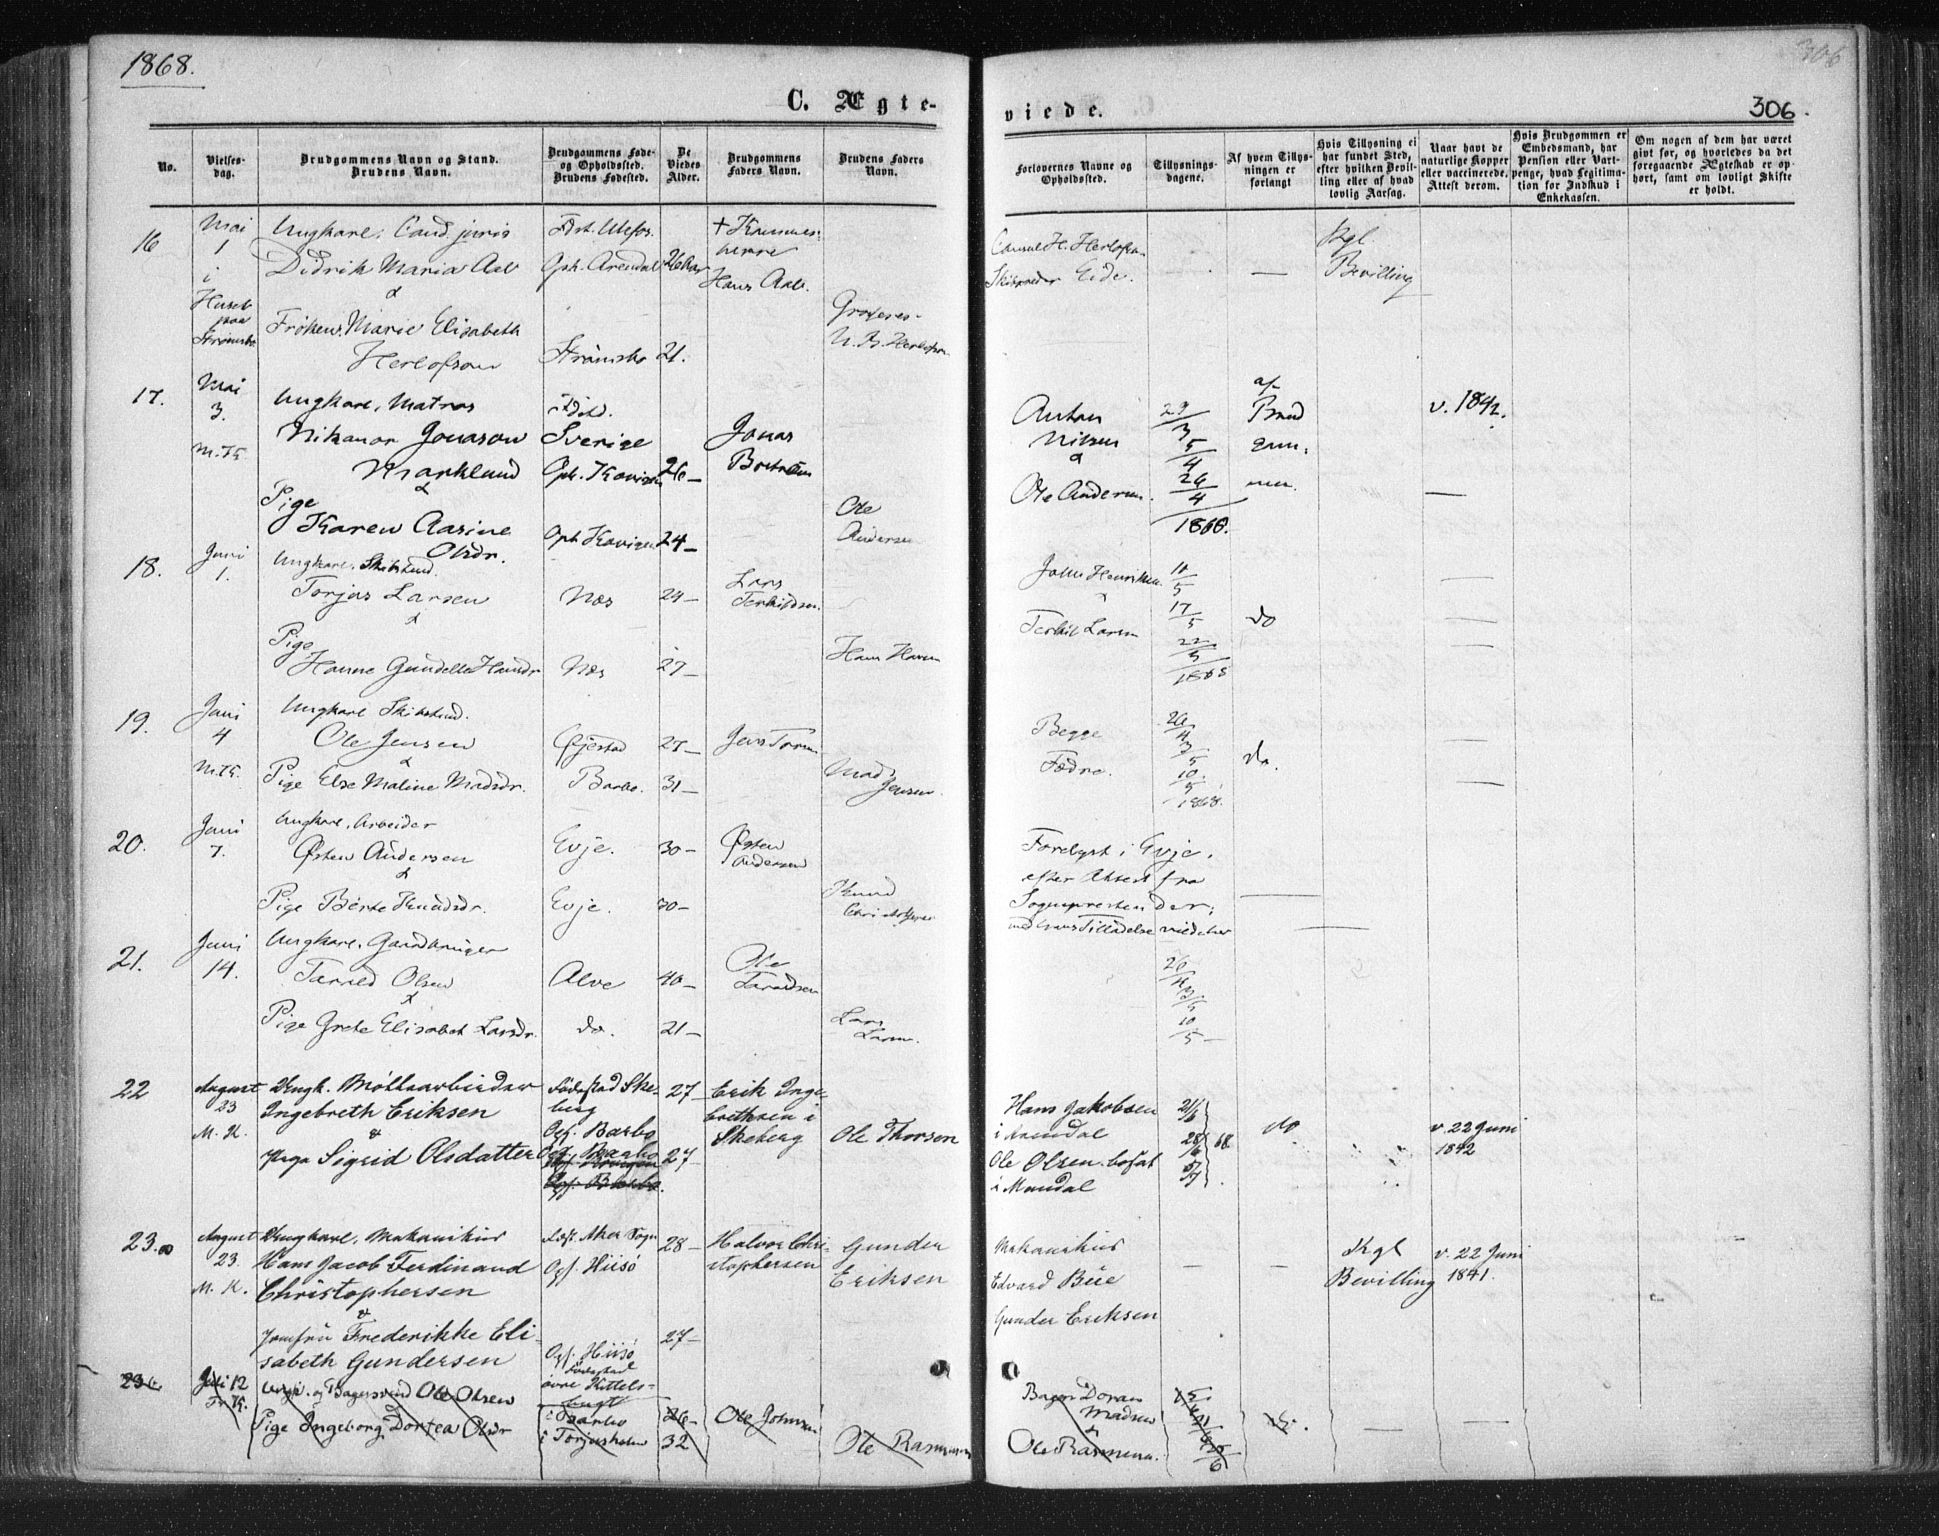 1868.
C. Ægte-
No.
Vielses-
dag.
Brudgommens Navn og Stand.
Brudens Navn.
Brudgommens Føde-
og Opholdssted.
Brudens Fødested.
De
Viedes
Alder.
Brudgommens
Faders Navn.
Brudens Faders
Navn.
16
Mai
1
i
Ungkarl, Cand juris
Didrik Maria Aall
&
Frøken Marie Elisabeth
Herlofson
Oph. Arendal
Strømsbo
26 Aar
21.
Hans Aall.
17.
Mai
3.
M.K.
Ungkarl, Matros
Nikanor Jonason
Marklund
&
Pige
Karen Aasine
Olsdr.
Sverige
Oph. Kovigen
Oph. Kovigen
26 —
24 —
Jonas
Ole
Andersen
18.
Juni
1.
Ungkarl. Skibstmd.
Torjus Larsen
&
Pige
Hanne Gundelle Hansdr
Næs
Næs
24 —
27 —
Lars
Terkildsen
Hans Hansen
19.
Juni
4
M.K.
Ungkarl Skibstmd.
Ole Jensen
&
Pige Else Maline Madsdr.
Øjestad
Barbo.
27 —
31 —
Jens
Mads
Jensen
20.
Juni
7.
Ungkarl, Arbeider
Østen Andersen
&
Pige Berte Knudsdr.
Evje.
Evje.
30 —
30 —
Østen
Andersen
Knud
Christophersen
21.
Juni
14.
Ungkarl, Gaardbruger
Tarald Olsen
&
Pige Grete Elisabet Larsdr.
Alve
do.
40 —
21 —
Ole
Taraldsen
Lars
Larsen
22
August
23
M. K.
Ungk. Møllearbeider
Ingebreth Eriksen
&
Pige Sigrid Olsdatter
Fødestad Ske-
berg
Opf. Barbo
Opf. Barbo
27 —
27 —
Erik Inge-
brethsen i
Skeberg
Ole Thorsen
23.
August
23.
M. K.
Ungkarl, Mekanikus
Hans Jacob Ferdinand
Christophersen
&
Jomfru Frederikke Eli-
sabeth Gundersen
Fødst. Aker Sogn
Opf. Hiisø
Opf. Hiisø
Fødestad
øvre Kittels-
bugt
28 —
27 —
Halvor Chri-
stophersen
Gunder
Eriksen
Juli 12
Fr. K.
Ungk. og Bagersvend Ole Olsen
Pige Ingeborg Dortea Olsdr
i Barbo
i Torjusholm
26 —
32
Ole Johnsen
Ole Rasmussen
306
viede.
306.
Forlovernes Navne og
Opholdssted.
Tillysnings-
dagene.
Af hvem Tillys-
ningen er
forlangt
Hvis Tillysning ei
har fundet Sted,
efter hvilken Bevil-
ling eller af hvad
lovlig Aarsag.
Naar havt de
naturlige Kopper
eller vaccinerede.
Attest derom.
Hvis Brudgommen er
Embedsmand, har
Pension eller Vart-
penge, hvad Legitima-
tion for Indskud i
Enkekassen.
Om nogen af dem har været
givt før, og hvorledes da det
foregaaende Ægteskab er op-
hørt, samt om lovligt Skifte
er holdt.
Consul H. Herlofson
Skibsreder Eide.
Kgl.
Bevilling
Anton
Nilsen
&
Ole Andersen.
29/3
5/4
26/4
1868.
af
Brud
gom.
men.
v. 1842.
John Henriksen
Terkil Larsen
10/5
17/5
22/5
1868
do
Begge
Fædre.
26/4
3/5
10/5
1868.
do.
Forelyst i Evje.
efter Attest fra
Sognepresten der,
med hans Tilladelse viedes her
26/4
3/5
10/5
Hans Jakobsen
i Arendal
Ole Olsen bosat
i Mandal
21/6
28/6
5/7
68.
do
v. 22 Juni
1842
Mekanikus
Edvard Büe
Gunder Eriksen
Kgl
Bevilling
v. 22 Juni
1841.
Madsen
&
Ole Rasmussen.